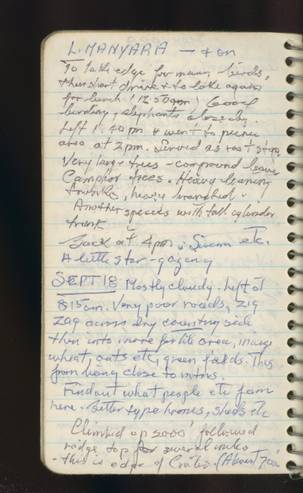 L. MANYARA — + on
To lake edge for many birds,
then short drink & to lake again
for lunch (12:50 pm) Good
birding, elephants close by.
Left 1:40 pm & went to picnic
area at 2 pm. Served as rest stop
Very large trees - compound leaves
Camphor trees. Heavy leaning
trunks, heavy branched.
Another species with tall cylinder
trunk
Back at 4 pm. Swim etc.
A little star-gazing
SEPT 18 Mostly cloudy. Left at
8:15 am. Very poor roads, zig
zag across dry country side
then into more fertile area, many
wheat, oats etc, green fields. This
from being close to mtns.
Find out what people etc farm
here. Better type homes, sheds etc
Climbed up 2000' followed
ridge top for several miles
- this is edge of Crater. (About 700'